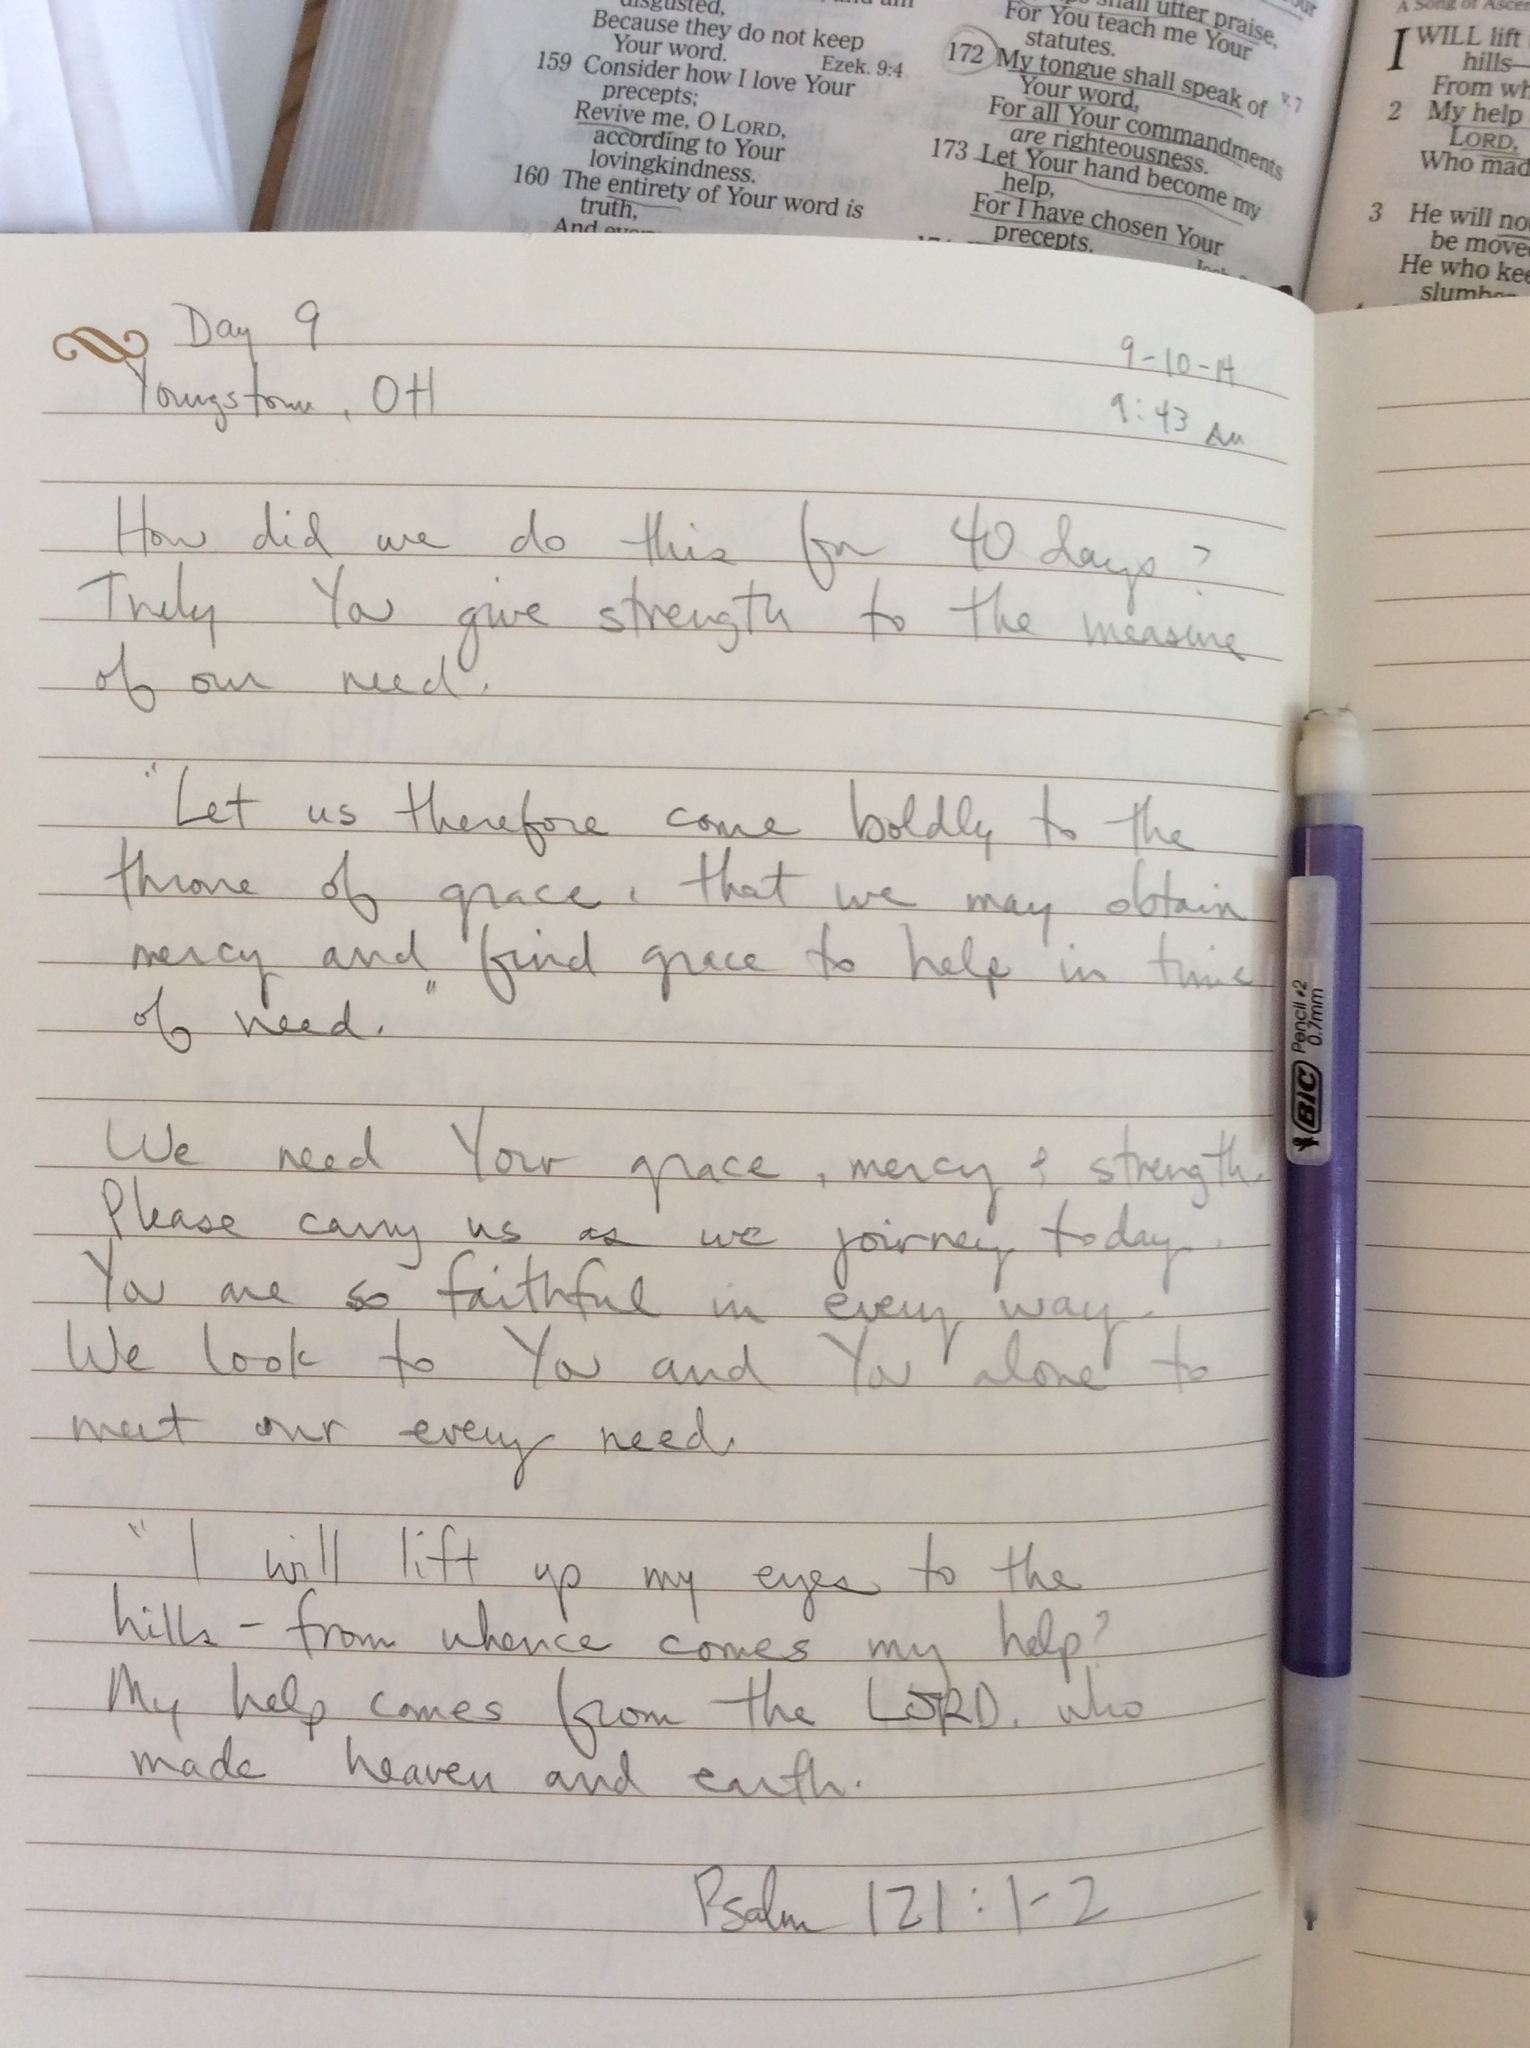 disgusted,
Because they do not keep
Your word.
Ezek. 9:4
159 Consider how I love Your
precepts;
Revive me, O LORD,
according to Your
lovingkindness.
160 The entirety of Your word is
truth,
And
shall utter praise,
For You teach me Your
statutes.
172 My tongue shall speak of
Your word,
v.7
For all Your commandments
are righteousness.
173 Let Your hand become my
help,
For I have chosen Your
precepts.
A Song of
I WILL lift
hills—
From
2 My help
LORD,
Who made
3 He will
be
He who
Day 9
9-10-14
Youngstown, OH
9:43 AM
How did we do this for 40 days?
Truly You give strength to the measure
of our need.
"Let us therefore come boldly to the
throne of grace, that we may obtain
mercy and find grace to help in time
of need."
We need Your grace, mercy & strength.
Please carry us as we joirney today.
You are so faithful in every way.
We look to You and You alone to
meet our every need.
"I will lift up my eyes to the
hills - from whence comes my help?
My help comes from the LORD, who
made heaven and earth.
Psalm 121:1-2
BIC Pencil #2
0.7mm